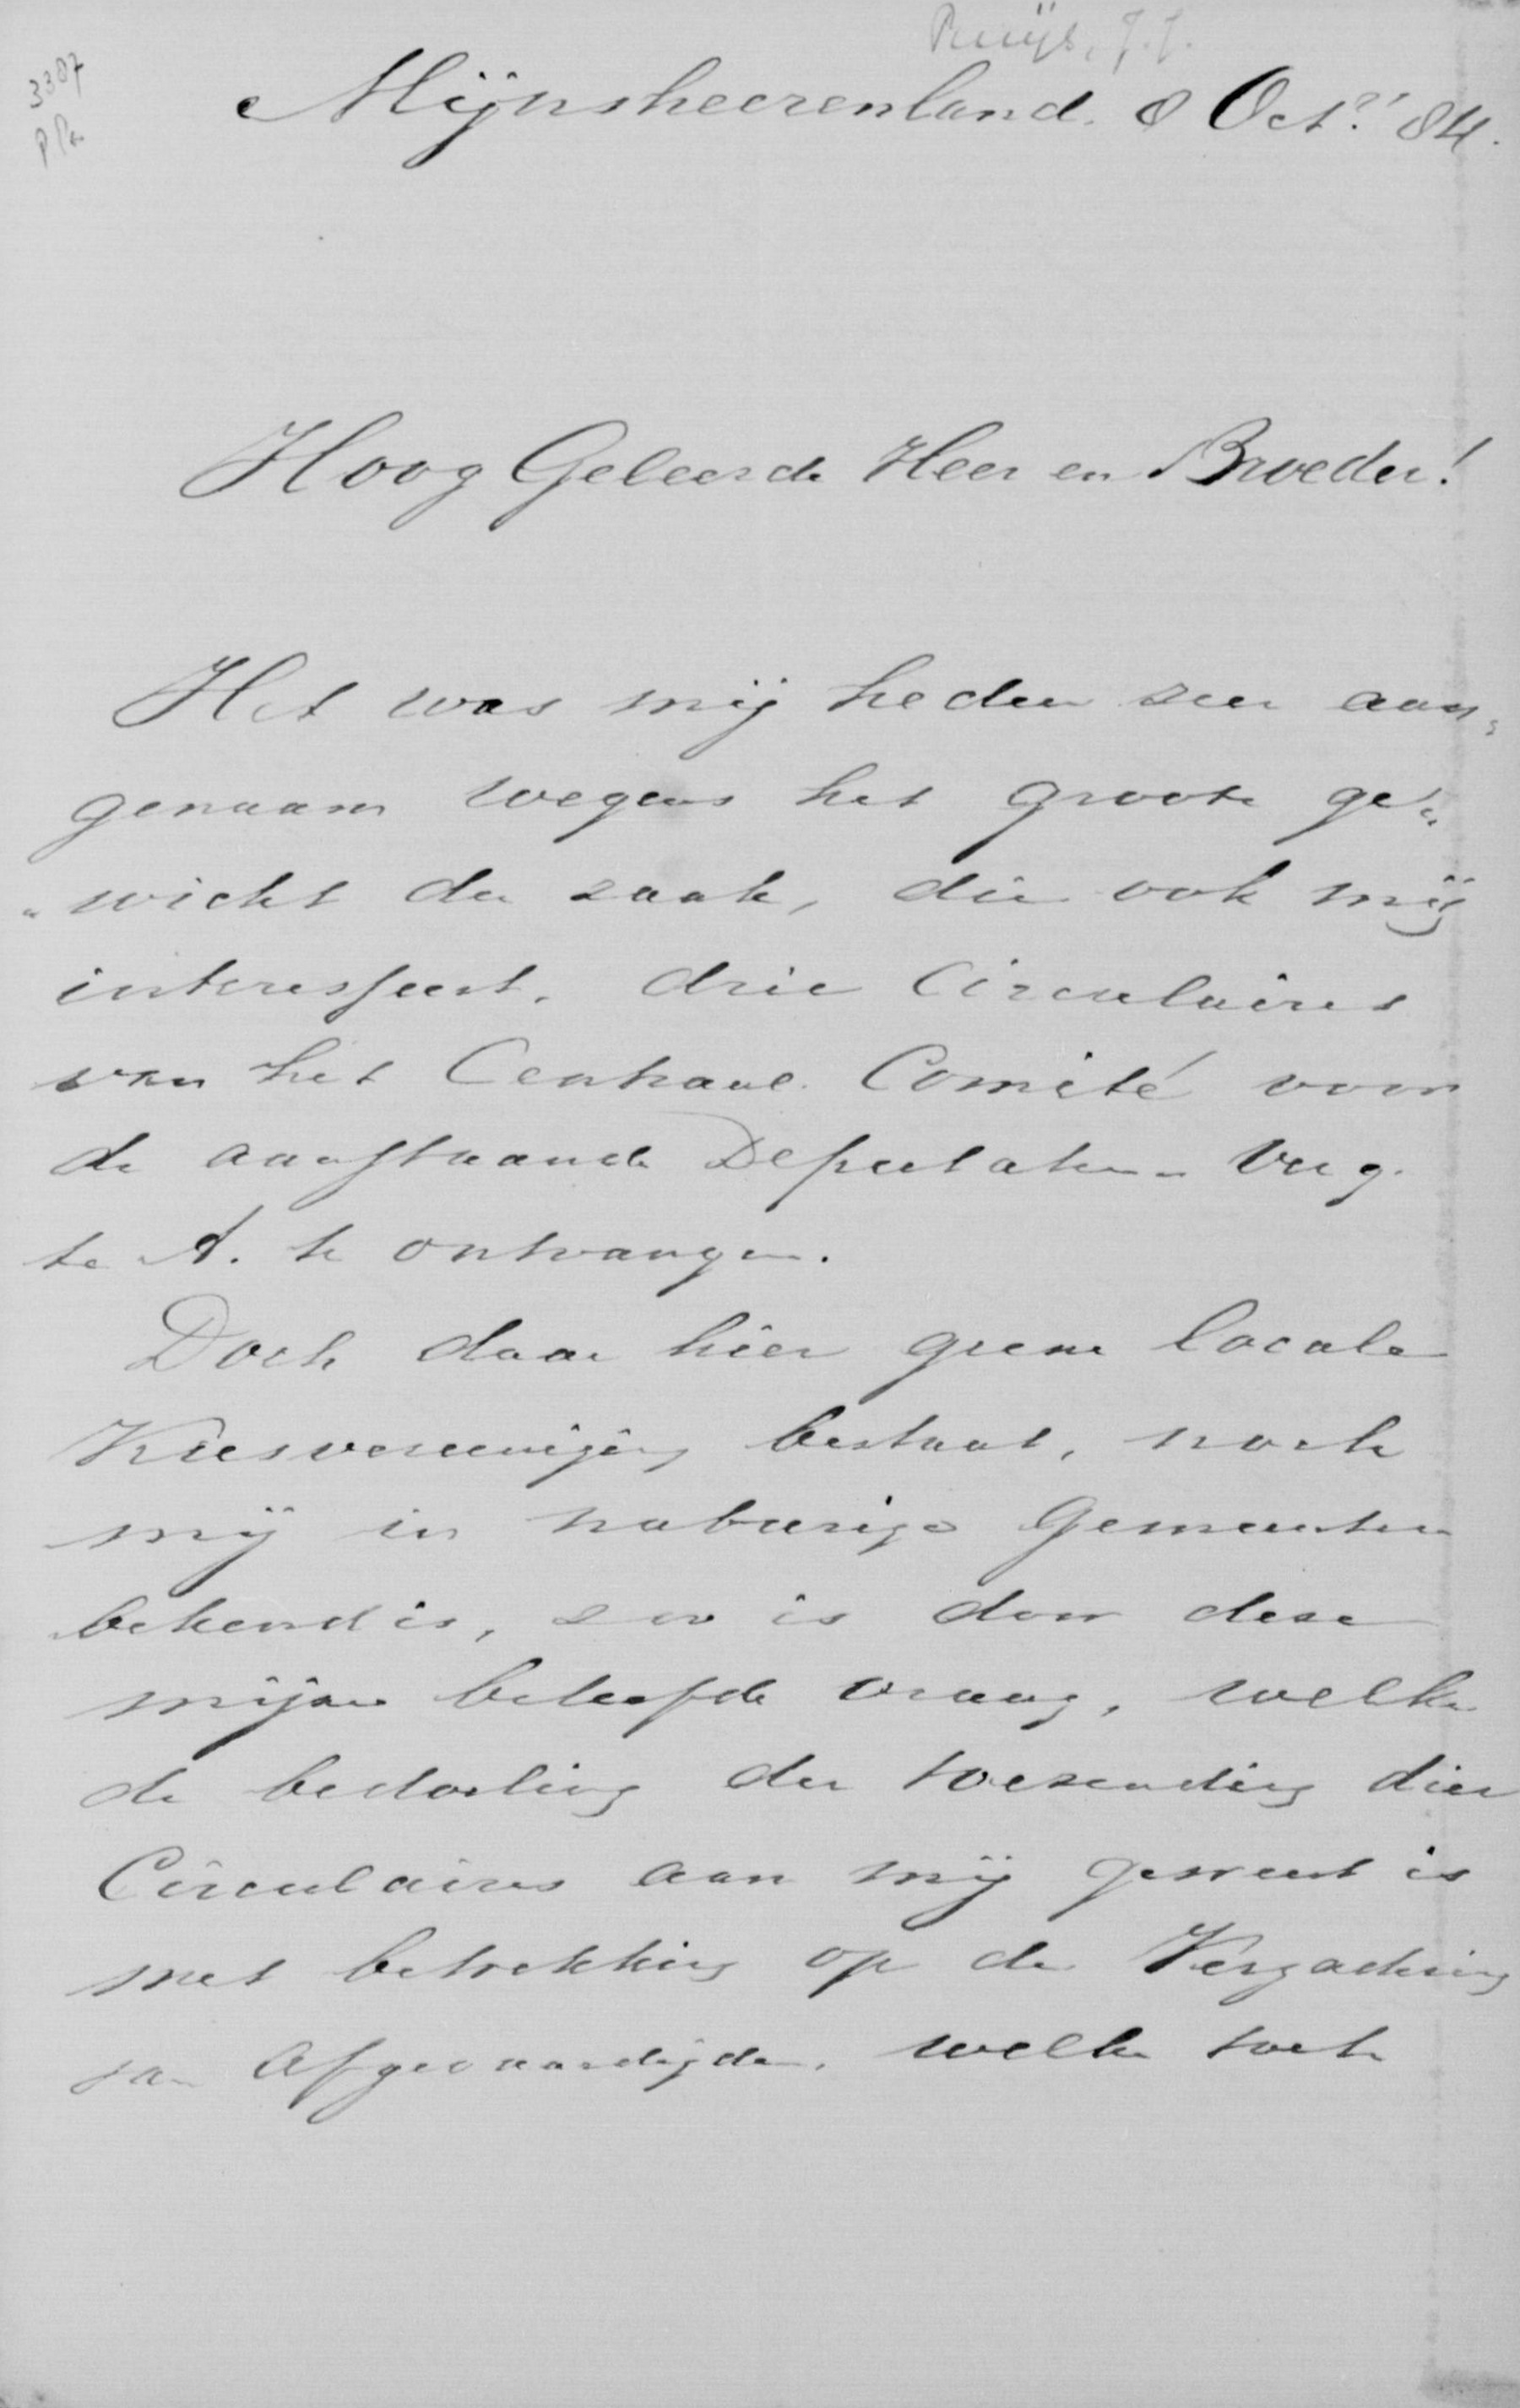 Ruijs, J.J.
3307
Mijnsheerenland. 8 Oct.r 84.
Hoog Geleerde Heer en Broeder!
Het was mij heden zeer aan-
genaam wegens het groote ge-
"wicht der zaak, die ook mij
interesseert, drie Circulaires
van het Centraal Comité voor
de aanstaande Deputaten-Verg.
te A. te ontvangen.
Doch daar hier geene locale
Kiesvereeniging bestaat, noch
mij in naburige Gemeenten
bekend is, zoo is door deze
mijne beleefde vraag, welke
de bedoeling der toezending dier
Circulaires aan mij geweest is
met betrekking op de Vergadering
van Afgevaardigden, welke toch